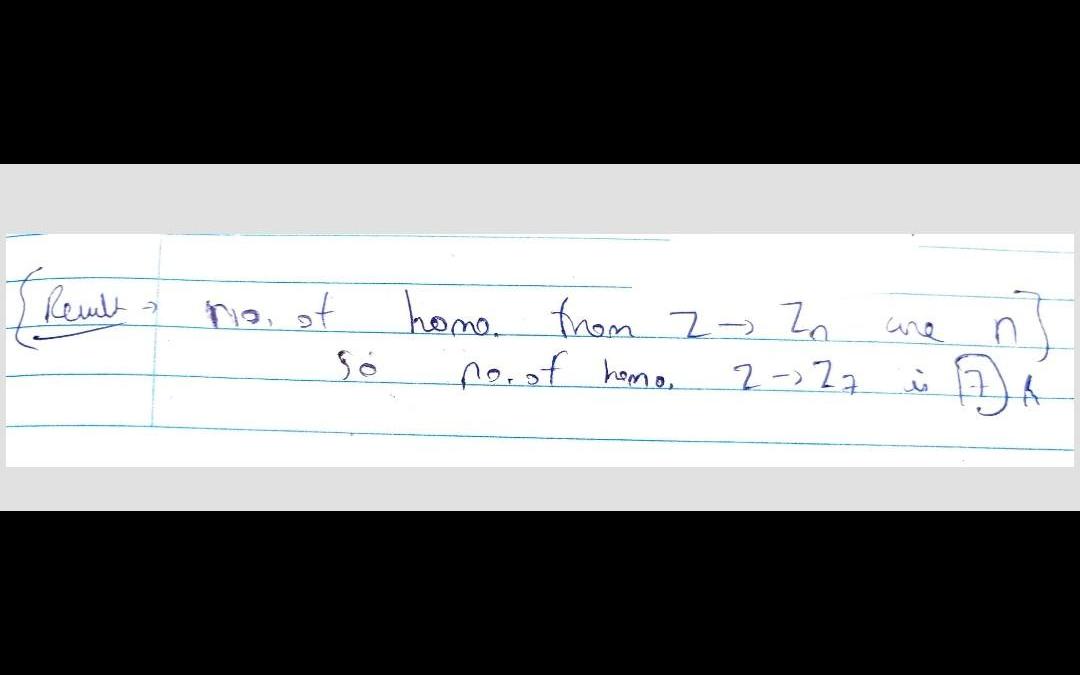 {Result → no. of homo. from Z → Zn are n}
So no. of homo. Z → Z7 is 7